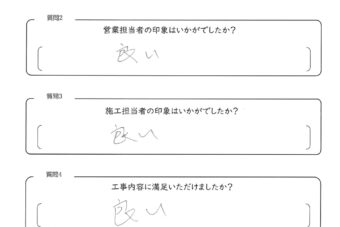 質問2
営業担当者の印象はいかがでしたか?
良い
質問3
施工担当者の印象はいかがでしたか?
良い
質問4
工事内容に満足いただけましたか?
良い